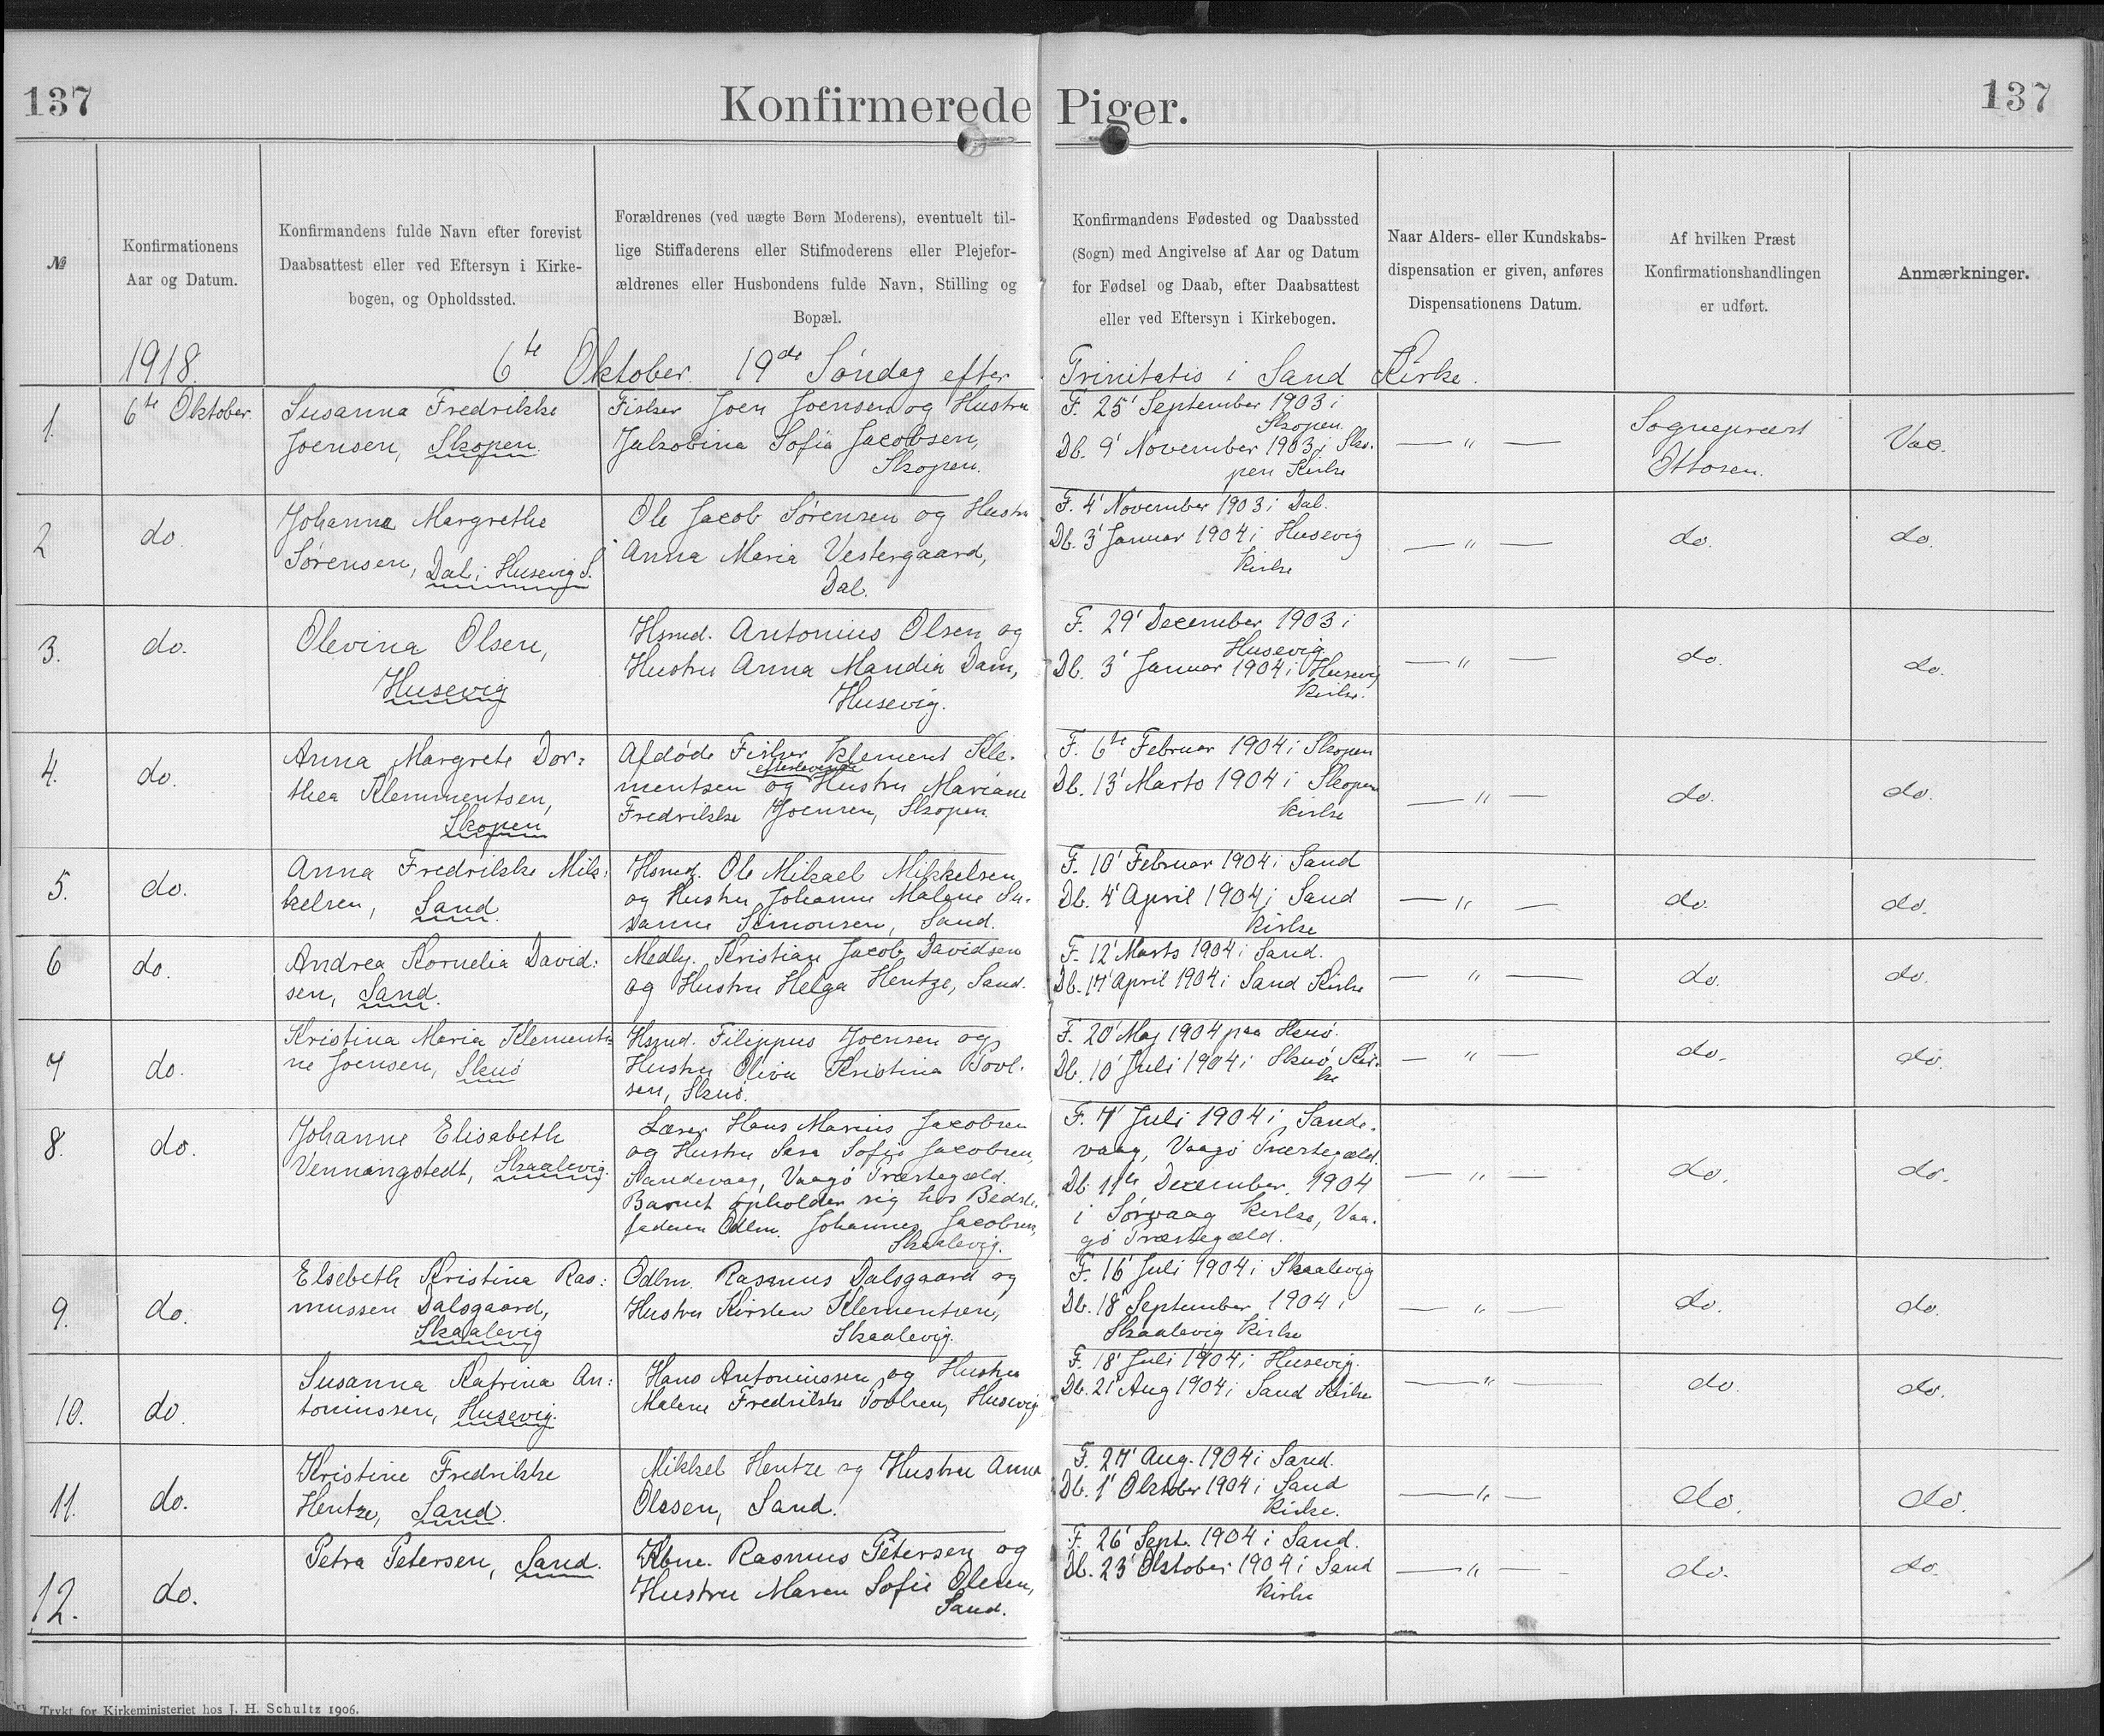 137
Konfirmerede Piger.
137
№
Konfirmationens
Aar og Datum.
Konfirmandens fulde Navn efter forevist
Daabsattest eller ved Eftersyn i Kirke-
bogen, og Opholdssted.
Forældrenes (ved uægte Børn Moderens), eventuelt til-
lige Stiffaderens eller Stifmoderens eller Plejefor-
ældrenes eller Husbondens fulde Navn, Stilling og
Bopæl.
Konfirmandens Fødested og Daabssted
(Sogn) med Angivelse af Aar og Datum
for Fødsel og Daab, efter Daabsattest
eller ved Eftersyn i Kirkebogen.
Naar Alders- eller Kundskabs-
dispensation er given, anføres
Dispensationens Datum.
Af hvilken Præst
Konfirmationshandlingen
er udført.
Anmærkninger.
1918.
6te Oktober. 19de Søndag efter Trinitatis i Sand Kirke.
1.
6te Oktober.
Susanna Fredrikke
Joensen, Skopen.
Fisker Joen Joensen og Hustru
Jakobina Sofia Jacobsen,
Skopen.
F. 25' September 1903 i
Skopen.
Db. 9' November 1903 i Sko-
pen Kirke
— " —
Sognepræst
Ottosen.
Vac.
2
do.
Johanna Margrethe
Sørensen, Dal i Husevig S.
Ole Jacob Sørensen og Hustru
Anna Maria Vestergaard,
Dal.
F. 4' November 1903 i Dal.
Db. 3' Januar 1904 i Husevig
Kirke
— " —
do.
do.
3.
do.
Olevina Olsen,
Husevig
Hsmd. Antonius Olsen og
Hustru Anna Mandia Dam,
Husevig.
F. 29' December 1903 i
Husevig.
Db. 3' Januar 1904 i Husevig
Kirke.
— " —
do.
do.
4.
do.
Anna Margrete Dor=
thea Klemmentsen,
Skopen
Afdøde Fisker Klement Kle-
efterlevende
mentsen og Hustru Mariane
Fredrikke Joensen, Skopen.
F. 6te Februar 1904 i Skopen
Db. 13' Marts 1904 i Skopen
Kirke
— " —
do.
do.
5.
do.
Anna Fredrikke Mik=
kelsen, Sand.
Hsmd. Ole Mikael Mikkelsen
og Hustru Johanne Malene Su-
sanne Simonsen, Sand.
F. 10' Februar 1904 i Sand
Db. 4' April 1904 i Sand
Kirke
— " —
do.
do.
6
do.
Andrea Kornelia David=
sen, Sand.
Medhj. Kristian Jacob Davidsen
og Hustru Helga Hentze, Sand.
F. 12' Marts 1904 i Sand.
Db. 17' April 1904 i Sand Kirke
— " —
do.
do.
7
do.
Kristina Maria Klementi=
ne Joensen, Skuø
Hsmd. Filippus Joensen og
Hustru Olivia Kristina Povl-
sen, Skuø.
F. 20' Maj 1904 paa Skuø.
Db. 10' Juli 1904 i Skuø Kir-
ke
— " —
do.
do.
8.
do.
Johanne Elisabeth
Venningstedt, Skaalevig.
Lærer Hans Marius Jacobsen
og Hustru Sara Sofie Jacobsen,
Sandevaag, Vaagø Præstegæld.
Barnet opholder sig hos Bedste-
faderen Odlm. Johannes Jacobsen,
Skaalevig.
F. 7' Juli 1904 i Sande-
vaag, Vaagø Præstegæld.
Db. 11te December 1904
i Sørvaag Kirke, Vaa-
gø Præstegæld.
— " —
do.
do.
9.
do.
Elsebeth Kristina Ras=
mussen Dalsgaard,
Skaalevig
Odlm. Rasmus Dalsgaard og
Hustru Kirsten Klementsen,
Skaalevig.
F. 16' Juli 1904 i Skaalevig
Db. 18' September 1904 i
Skaalevig Kirke
— " —
do.
do.
10.
do.
Susanna Katrina An=
toniussen, Husevig.
Hans Antoniussen og Hustru
Malene Fredrikke Povlsen, Husevig
F. 18' Juli 1904 i Husevig.
Db. 21' Aug 1904 i Sand Kirke
— " —
do.
do.
11.
do.
Kristine Fredrikke
Hentze, Sand.
Mikkel Hentze og Hustru Anna
Olesen, Sand.
F. 27' Aug. 1904 i Sand.
Db. 1' Oktober 1904 i Sand
Kirke.
— " —
do.
do.
12.
do.
Petra Petersen, Sand.
Kbm. Rasmus Petersen og
Hustru Maren Sofie Olesen,
Sand.
F. 26' Sept. 1904 i Sand.
Db. 23' Oktober 1904 i Sand
Kirke
— " —
do.
do.
Trykt for Kirkeministeriet hos J. H. Schultz 1906.